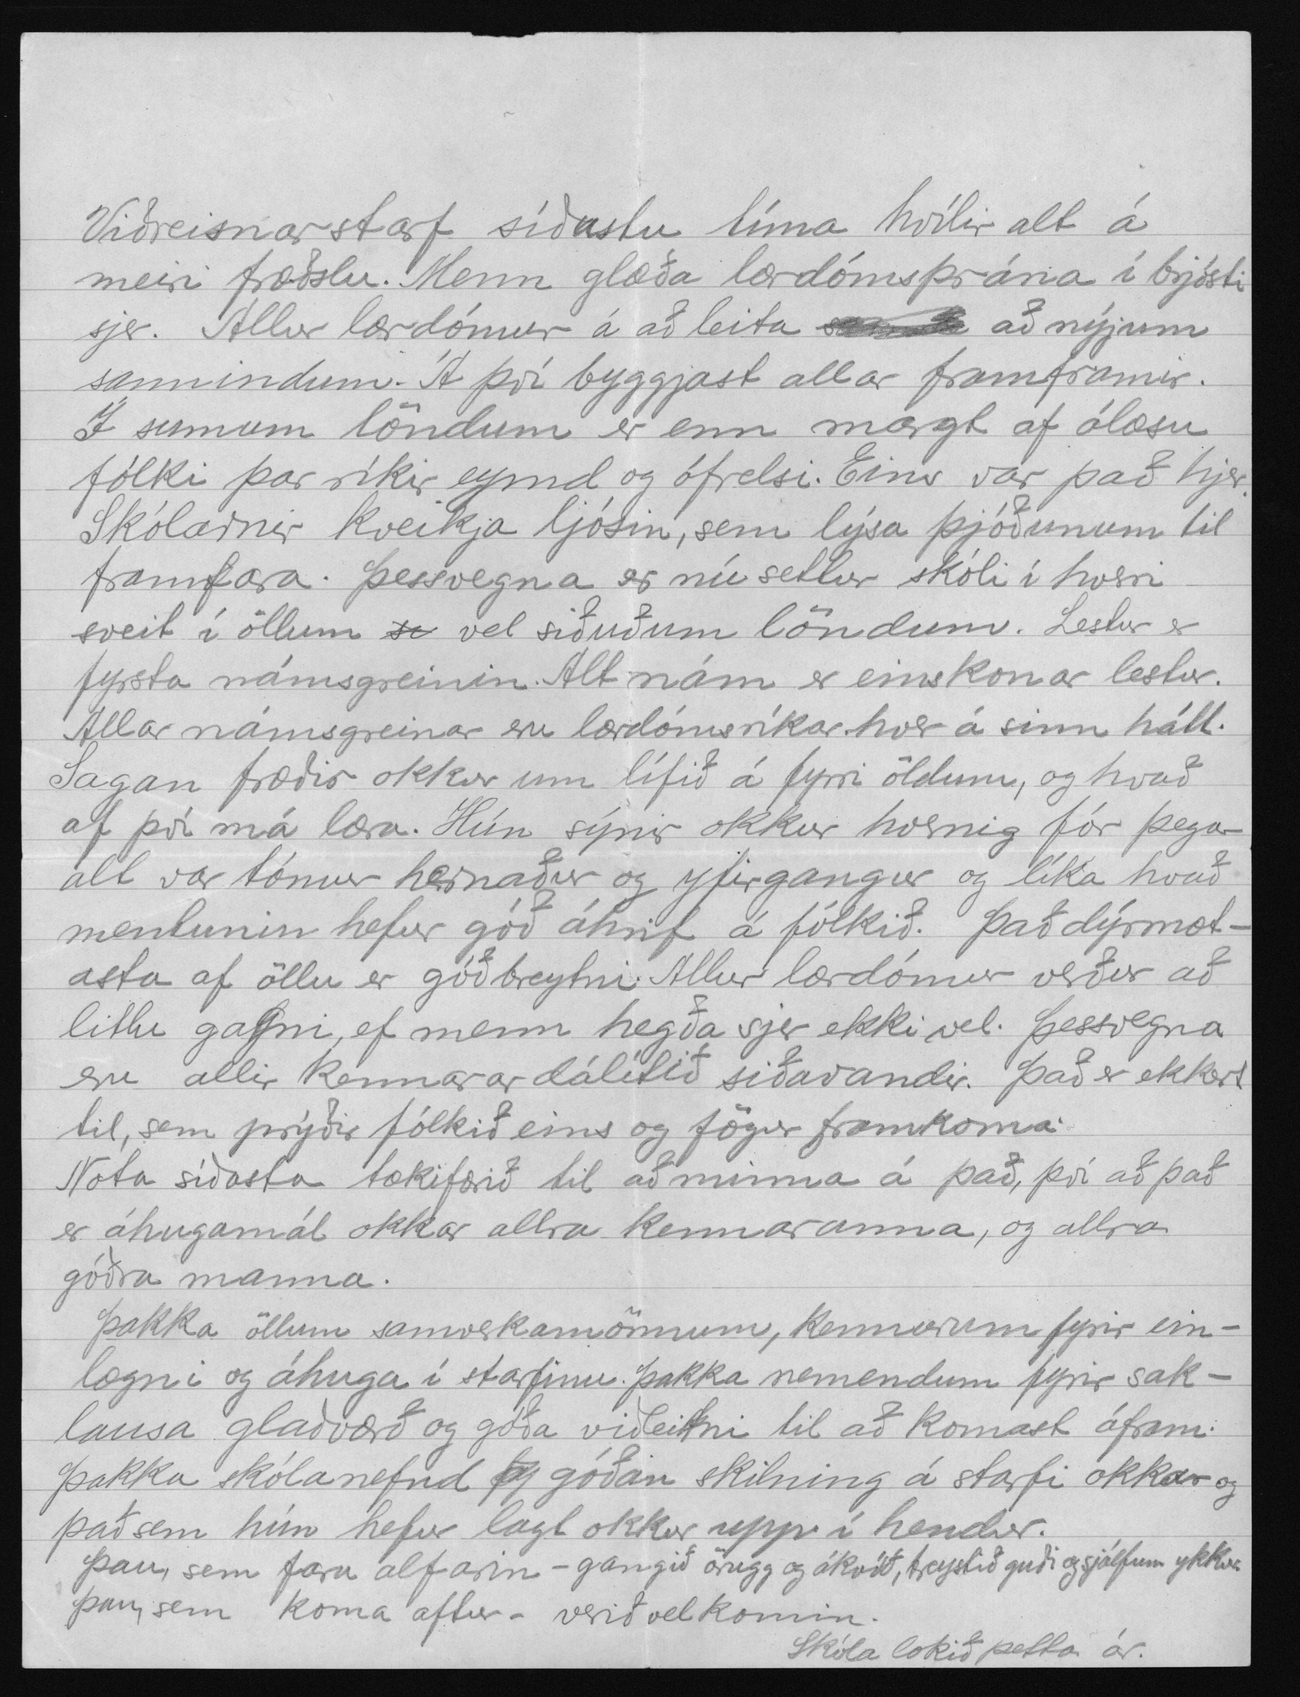 Viðreisnarstarf síðustu tíma hvílir alt á
meiri fræðslu. Menn glæða lærdómsþrána í brjósti
sjer. Allur lærdómur á að leita að nýjum
sannindum. Á því byggjast allar framframir.
Í sumum löndum er enn margt af ólæsu
fólki þar ríkir eymd og ófrelsi. Eins var það hjer.
Skólarnir kveikja ljósin, sem lýsa þjóðunum til
framfara. Þessvegna er nú settur skóli í hverri
sveit í öllum vel siðuðum löndum. Lestur er
fyrsta námsgreinin. Alt nám er einskonar lestur.
Allar námsgreinar eru lærdómsríkar hver á sinn hátt.
Sagan fræðir okkur um lífið á fyrri öldum, og hvað
af því má læra. Hún sýnir okkur hvernig fór þegar
alt var tómur hernaður og yfirgangur og líka hvað
mentunin hefur góð áhrif á fólkið. Það dýrmæt-
asta af öllu er góðbreytni. Allur lærdómur verður að
litlu gagni, ef menn hegða sjer ekki vel. Þessvegna
eru allir kennarar dálítið siðavandir. Það er ekkert
til, sem prýðir fólkið eins og fögur framkoma.
Nota síðasta tækifærið til að minna á það, því að það
er áhugamál okkar allra kennaranna, og allra
góðra manna.
Þakka öllum samverkamönnum, kennurum fyrir ein-
lægni og áhuga í starfinu. Þakka nemendum fyrir sak-
lausa glaðværð og góða viðleitni til að komast áfram.
Þakka skólanefnd góðan skilning á starfi okkar og
það sem hún hefur lagt okkur upp í hendur.
Þau, sem fara alfarin - gangið örugg og ókvíð, treystið guði og sjálfum ykkur
Þau, sem koma aftur - verið velkomin.
Skóla lokið þetta ár.